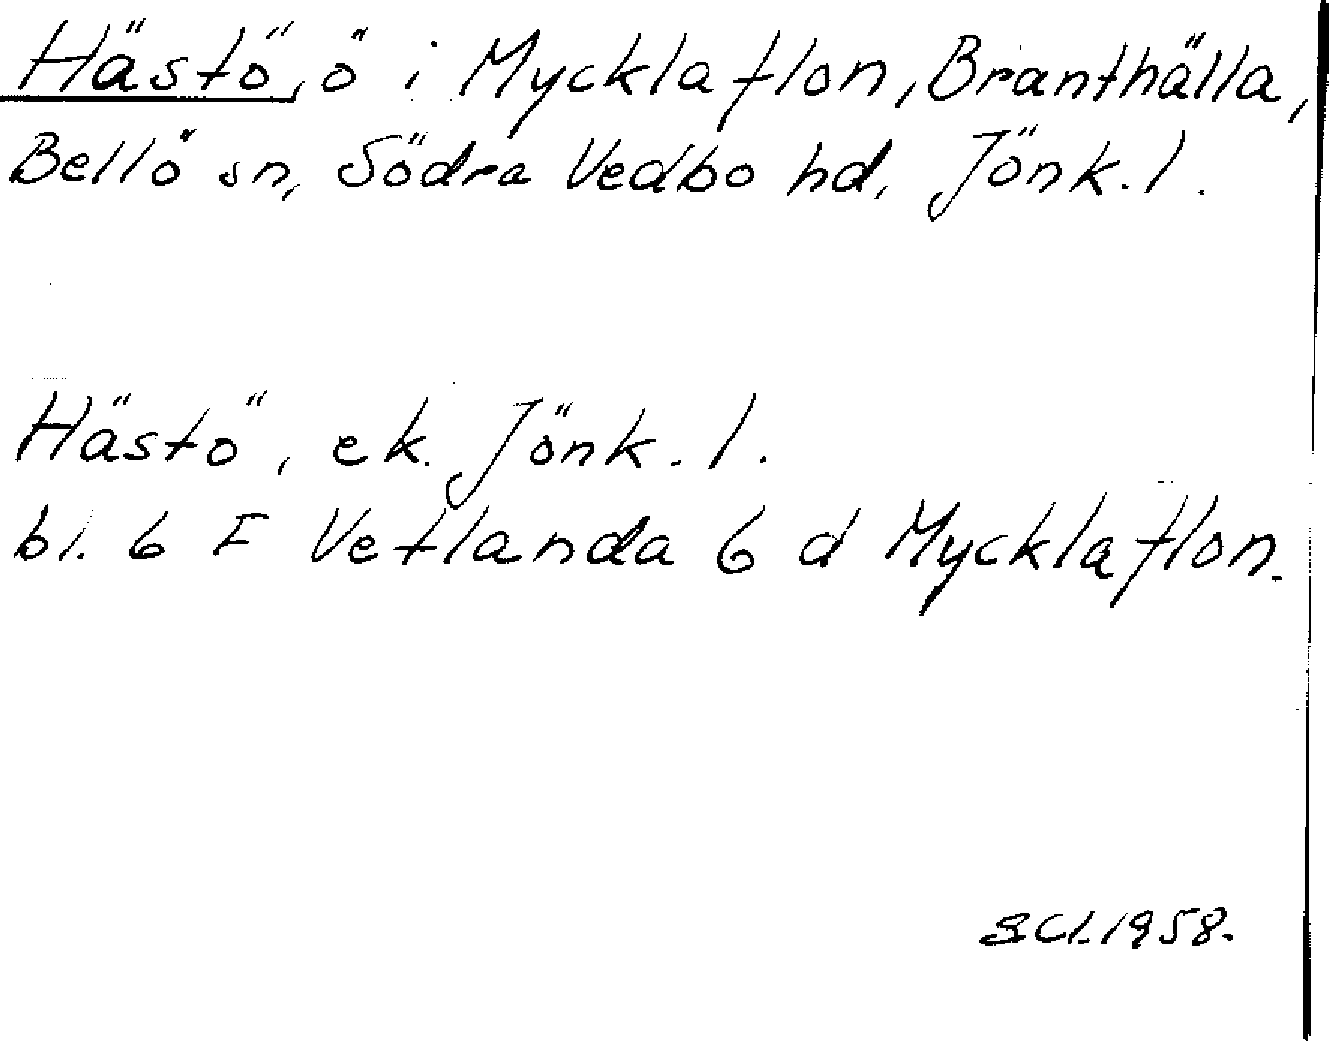 Hästö, ö i Mycklaflon, Branthälla,
Bellö sn, Södra Vedbo hd, Jönk. l.
Hästö, ek. Jönk. l.
bl. 6 F Vetlanda 6 d Mycklaflon.
1958.